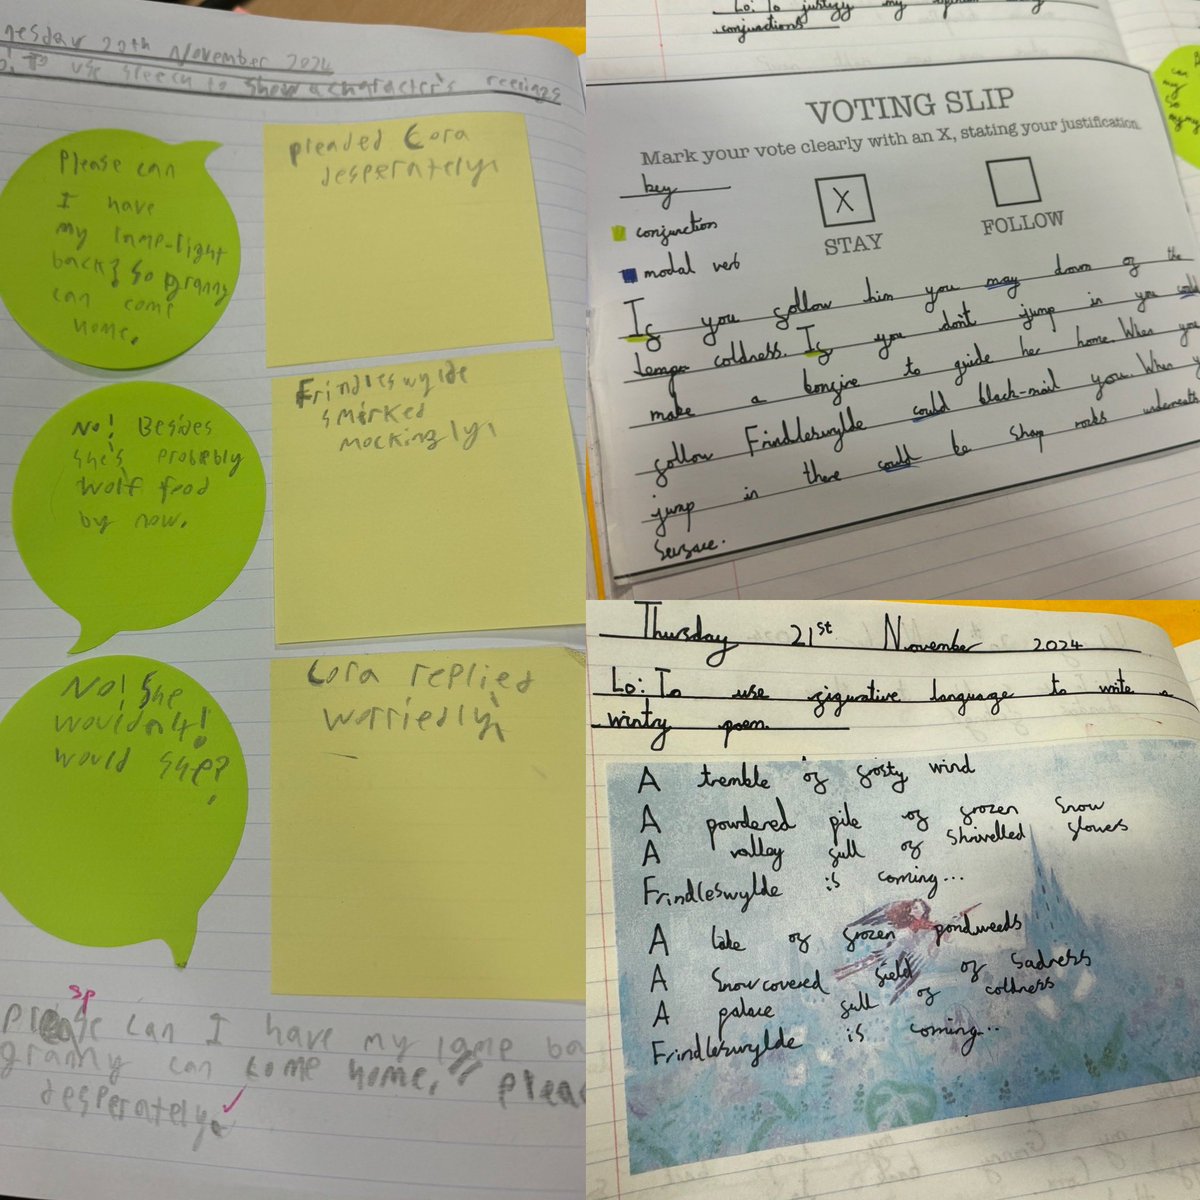 20th November 2024
To use speech to show a character's feelings
Please can
I have
my lamp-light
back? So granny
can come
home.
pleaded Cora
desperately,
No! Besides
she's probably
wolf food
by now.
Frindleswylde
smirked
mockingly,
No! She
wouldn't!
would she?
Cora replied
worriedly,
sp
Please can I have my lamp
granny can come home."
desperately.
Lo: To justify my
conjunctions
VOTING SLIP
Mark your vote clearly with an X, stating your justification.
key
conjunction
modal verb
X
STAY
FOLLOW
If you follow him you may down of the
coldness. If you don't jump in you could
make a bonfire to guide her home. When you
follow Frindleswylde could black-mail you. When
jump in there could be sharp rocks underneath
surface.
Thursday 21st November 2024
Lo: To use figurative language to write a
wintry poem.
A tremble of frosty wind
A powdered pile of frozen snow
A valley full of shrivelled flowers
Frindleswylde is coming...
A lake of frozen pondweeds
A snow covered field of sadness
A palace full of coldness
Frindleswylde is coming...